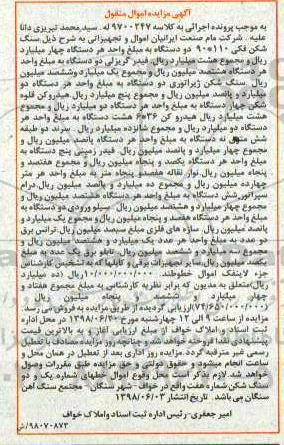 آگهی مزایده اموال منقول
به موجب پرونده اجرائی به کلاسه ۹۷۰۰۲۴۷ له . سید محمد تبریزی دانا
علیه . شرکت مام صنعت ایرانیان اموال و تجهیزاتی به شرح ذیل سنگ
شکن فکی ۱۱۰*۹۰ دو دستگاه به مبلغ واحد هر دستگاه چهار میلیارد
ریال و مجموع هشت میلیارد ریال. فیدر گریزلی دو دستگاه به مبلغ واحد
هر دستگاه هشتصد میلیون ریال و مجموع یک میلیارد وششصد میلیون
ریال. سنگ شکن ژیراتوری دو دستگاه به مبلغ واحد هر دستگاه دو
میلیارد و پانصد میلیون ریال و مجموع پنج میلیارد ریال. هیدروکن فلوو
شکن چهار دستگاه به مبلغ واحد هر دستگاه دو میلیارد ریال و مجموع
هشت میلیارد ریال هیدرو کن ۶۰۳۶ هشت دستگاه به مبلغ واحد هر
دستگاه دو میلیارد ریال و مجموع شانزده میلیارد ریال. سرند دو طبقه
شش متری نه دستگاه به مبلغ واحد هر دستگاه پانصد میلیون ریال و
مجموع چهار میلیارد و پانصد میلیون ریال. فیدر زمینی پنج دستگاه به
مبلغ واحد هر دستگاه یکصد و پنجاه میلیون ریال و مجموع هفتصد و
پنجاه میلیون ریال. نوار نقاله هفصدو پنجاه متر به مبلغ واحد هر متر
چهارده میلیون ریال و مجموع ده میلیارد و پانصد میلیون ریال. درام
سپراتور شش دستگاه به مبلغ واحد هر دستگاه هشتصد میلیون ریال و
مجموع چهار میلیارد و هشتصد میلیون ریال. سیلو ورودی دو دستگاه به
مبلغ واحد هر دستگاه هفصد و پنجاه میلیون ریال و مجموع یک میلیارد و
پانصد میلیون ریال. سازه های فلزی مبلغ سیصد میلیون ریال. ترانس برق
دو عدد به مبلغ واحد هر عدد یک میلیارد و هشتصد میلیون ریال و
مجموع سه میلیارد و ششصد میلیون ریال. تابلو برق یک عدد به مبلغ
یکصد میلیون ریال. سایر تجهیزات برقی و کابلها که به تشخیص کارشناس
جزء لاینفک اموال خطوطند. ۱۰/۰۰۰/۰۰۰/۰۰۰ریال (ده میلیارد
ریال)متعلق به مدیون که برابر نظریه کارشناس به مبلغ مجموع هفتاد و
چهار میلیارد و ششصد و پنجاه میلیون ریال
(۷۴/۶۵۰/۰۰۰/۰۰۰)ارزیابی گردیده از طریق مزایده به فروش می رسد.
مزایده از ساعت ۹ الی ۱۲ چهارشنبه مورخ ۱۳۹۸/۰۶/۲۰ در محل اداره
ثبت اسناد و املاک خواف از مبلغ ارزیابی آغازو به بالاترین قیمت
پیشنهادی نقدا فروخته خواهد شد و چنانچه روز مزایده مصادف با تعطیل
رسمی غیر مترقبه گردد. مزایده روز اداری بعد از تعطیل در همان محل و
ساعت انجام میشود و حقوق دولتی و حق مزایده طبق مقررات وصول
خواهد شد. لازم بذکر است محل وقوع اموال خطهای شماره یک و دو
سنگ شکن شماره هفت واقع در خواف- شهر سنگان- مجتمع سنگ آهن
سنگان می باشد. تاریخ انتشار ۱۳۹۸/۰۶/۰۳
امیر جعفری-رئیس اداره ثبت اسناد واملاک خواف
۹۸۰۷۰۸۷۳/ش